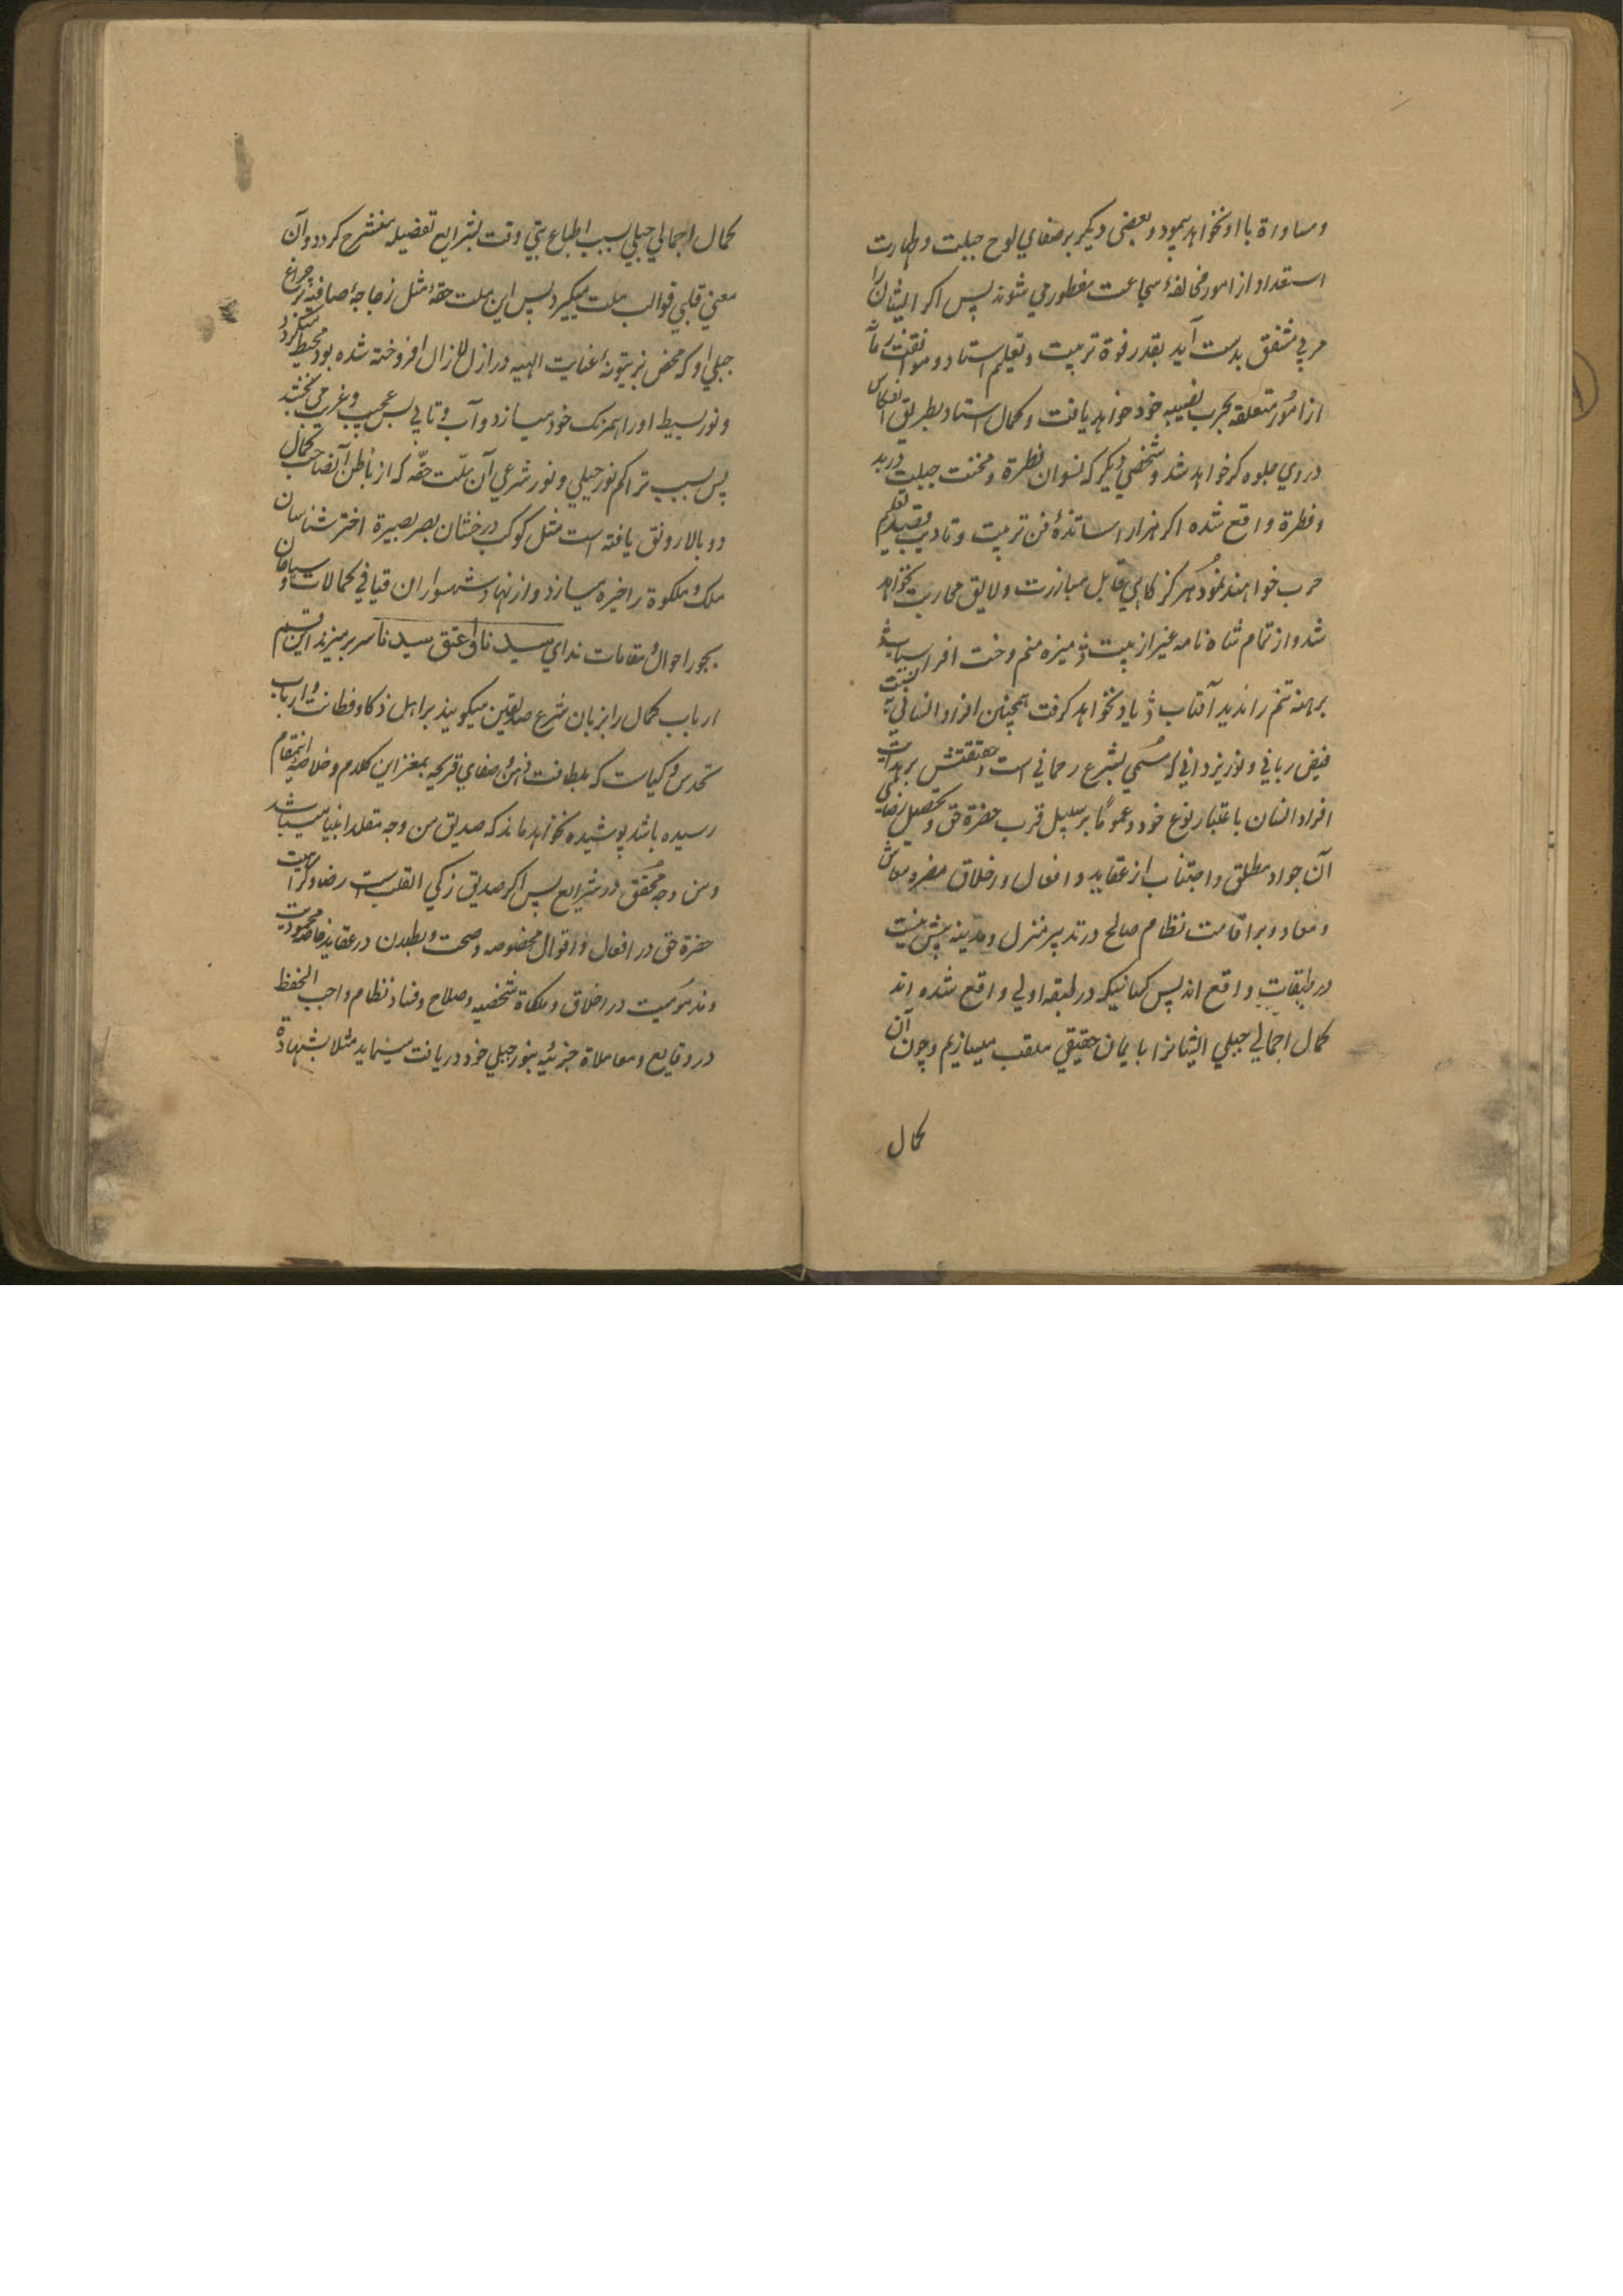 ومساواة با او نخواهد پیمود و بعضی دیگر بر صفای لوح جبلت وطهارت
استعداد از امور مخالفهٔ شجاعت مفطور می شوند پس اکر ایشان را
مربی مشفق بدست آید بقدر قوة تربیت و تعلیم استاد و موافقت زمانه
از امور متعلقه بحرب نصیبه خود خواهد یافت وکمال استاد بطریق انعکاس
در وی جلوه کر خواهد شد و شخصی دیکر که نسوان فطرة و مخنث جبلت در بدو
وفطرة واقع شده اکر هزار اساتذهٔ فن تربیت وتادیب بقصد تعلیم
حرب خواهند نمود هرکز کاهی قابل مبارزت ولایق محاربت نخواهد
شد و از تمام شاه نامه غیر از بیت منیزه منم دخت افراسیاب
برهنه تنم را ندید آفتاب یاد نخواهد کرفت همچنین افراد انسانی نسبت به
فیض ربانی و نور یزدانی که مسمی بشرع رحمانی است و حقیقتش بر هدایت
افراد انسان باعتبار نوع خود وعموما بر سبیل قرب حضرة حق و تحصیل رضای
آن جواد مطلق واجتناب از عقاید و افعال و اخلاق مضره معاش
ومعاد و بر اقامت نظام صالح در تدبیر منزل و مدینه پیش نیست
در طبقات واقع اند پس کسانیکه در طبقه اولی واقع شده اند
کمال اجمالی جبلی ایشانرا بایمان حقیقی ملقب میسازیم وچون آن
کمال
کمال اجمالی جبلی بسبب اطباع وقت بشرایع تفصیلیه منشرح کردد وآن
معنی قلبی قوالب ملت میکیرد پس این ملت حقه مثل زجاجهٔ صافیه بر چراغ
جبلی او که محض بزیتونهٔ عنایت الهیه در ازل الازال افروخته شده بود محیط میکردد
و نور بسیط او را همرنک خود میسازد وآب وتابی بس عجیب وغریب می بخشد
پس بسبب تراکم نور جبلی و نور شرعی آن ملت حقه که از باطن آنصاحب کمال
دو بالا رونق یافته است مثل کوکب درخشان بصر بصیرة اختر شناسان
ملک و ملکوة را خیره میسازد و از نهاد شهسواران فیافی کمالات و سباحان
بحور احوال و مقامات ندای سیدنا و اعتق سیدنا سر بر میزند این قسم
ارباب کمال را بزبان شرع صدیقین میکویند بر اهل ذکا و فطانت و ارباب
تحدس و کیاست که بلطافت ذهن و صفای قریحه بمغز این کلام و خلاصه اینمقام
رسیده باشد پوشیده نخواهد ماند که صدیق من وجه مقلد انبیا میباشد
ومن وجه محقق در شرایع پس اکر صدیق زکی القلب است رضا و کراهیت
حضرة حق در افعال و اقوال مخصوصه وصحت و بطلان در عقاید خاصه ومحمودیت
ومذمومیت در اخلاق وملکاة شخصیه وصلاح وفساد نظام واجب الحفظ
در وقایع ومعاملاة جزئیه بنور جبلی خود دریافت مینماید مثلا بشهادة